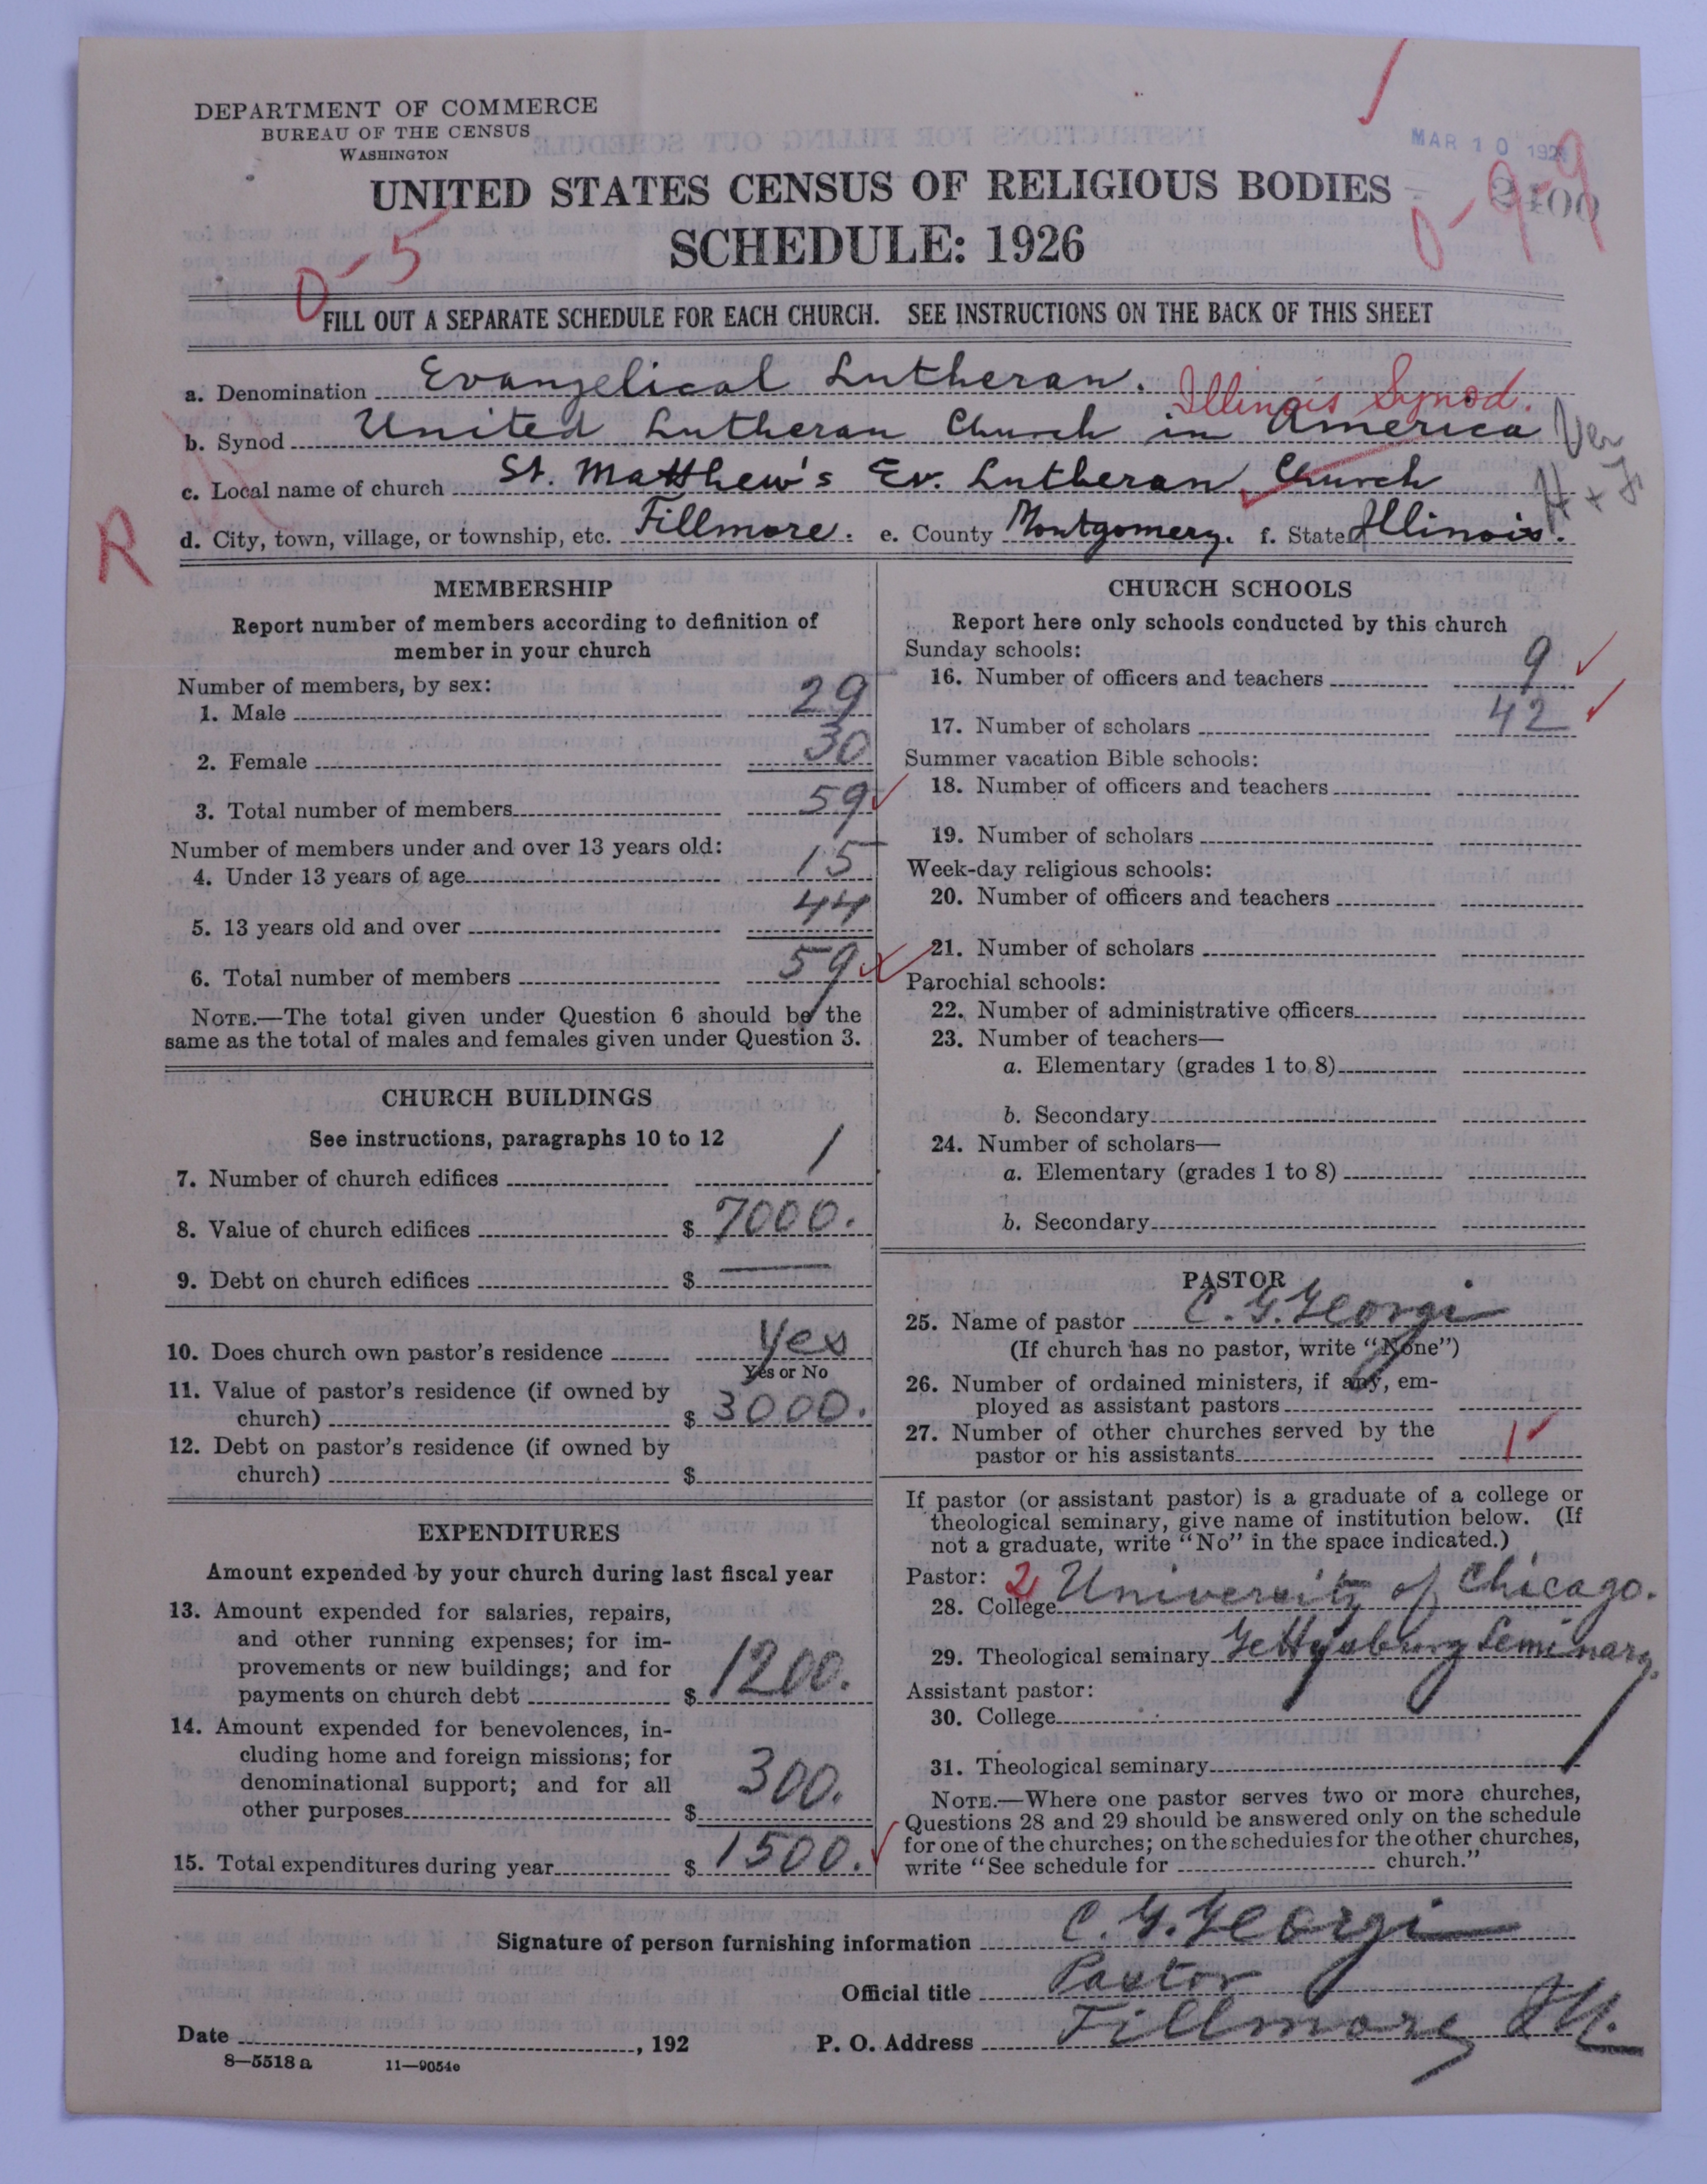 DEPARTMENT OF COMMERCE
BUREAU OF THE CENSUS
WASHINGTON
MAR 10 192
UNITED STATES CENSUS OF RELIGIOUS BODIES
2400
0-9-9
SCHEDULE: 1926
0-5
FILL OUT A SEPARATE SCHEDULE FOR EACH CHURCH. SEE INSTRUCTIONS ON THE BACK OF THIS SHEET
a. Denomination Evangelical Lutheran. Illinois Synod.
b. Synod United Lutheran Church in America Ver
c. Local name of church St. Matthew's Ev. Lutheran Church
d. City, town, village, or township, etc. Fillmore. e. County Montgomery. f. State Illinois.
R
MEMBERSHIP
Report number of members according to definition of
member in your church
Number of members, by sex:
1. Male 29
2. Female 30
3. Total number of members 59
Number of members under and over 13 years old:
4. Under 13 years of age 15
5. 13 years old and over 44
6. Total number of members 59
NOTE.—The total given under Question 6 should be the
same as the total of males and females given under Question 3.
CHURCH BUILDINGS
See instructions, paragraphs 10 to 12
7. Number of church edifices 1
8. Value of church edifices $ 7000.
9. Debt on church edifices $ —
10. Does church own pastor's residence Yes
Yes or No
11. Value of pastor's residence (if owned by
church) $ 3000.
12. Debt on pastor's residence (if owned by
church) $
EXPENDITURES
Amount expended by your church during last fiscal year
13. Amount expended for salaries, repairs,
and other running expenses; for im-
provements or new buildings; and for
payments on church debt $ 1200.
14. Amount expended for benevolences, in-
cluding home and foreign missions; for
denominational support; and for all
other purposes $ 300.
15. Total expenditures during year $ 1500.
CHURCH SCHOOLS
Report here only schools conducted by this church
Sunday schools:
16. Number of officers and teachers 9
17. Number of scholars 42
Summer vacation Bible schools:
18. Number of officers and teachers
19. Number of scholars
Week-day religious schools:
20. Number of officers and teachers
21. Number of scholars
Parochial schools:
22. Number of administrative officers
23. Number of teachers—
a. Elementary (grades 1 to 8)
b. Secondary
24. Number of scholars—
a. Elementary (grades 1 to 8)
b. Secondary
PASTOR
25. Name of pastor C. G. Georgi
(If church has no pastor, write "None")
26. Number of ordained ministers, if any, em-
ployed as assistant pastors
27. Number of other churches served by the
pastor or his assistants 1
If pastor (or assistant pastor) is a graduate of a college or
theological seminary, give name of institution below. (If
not a graduate, write "No" in the space indicated.)
Pastor: 2
28. College University of Chicago.
29. Theological seminary Gettysburg Seminary.
Assistant pastor:
30. College
31. Theological seminary
NOTE.—Where one pastor serves two or more churches,
Questions 28 and 29 should be answered only on the schedule
for one of the churches; on the schedules for the other churches,
write "See schedule for church."
Signature of person furnishing information C. G. Georgi
Official title Pastor
Date , 192 P. O. Address Fillmore, Ill.
8—5518 a 11—9054e